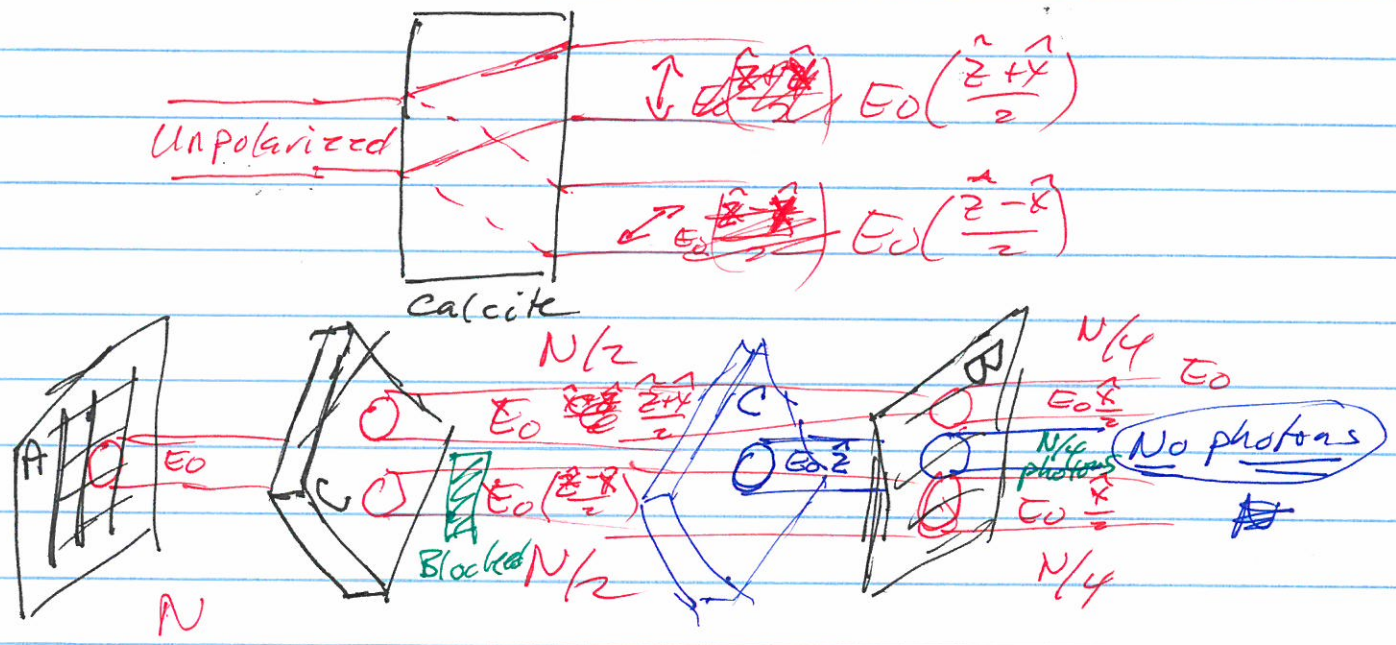 Unpolarized
E₀(ẑ+x̂/2)
E₀(ẑ-x̂/2)
Calcite
A
E₀
N
C
N/2
E₀ ẑ+x̂/2
E₀(ẑ-x̂/2)
Blocked
N/2
C
E₀ẑ
B
N/4
E₀
E₀ x̂/2
N/4 photons
No photons
E₀ x̂/2
N/4